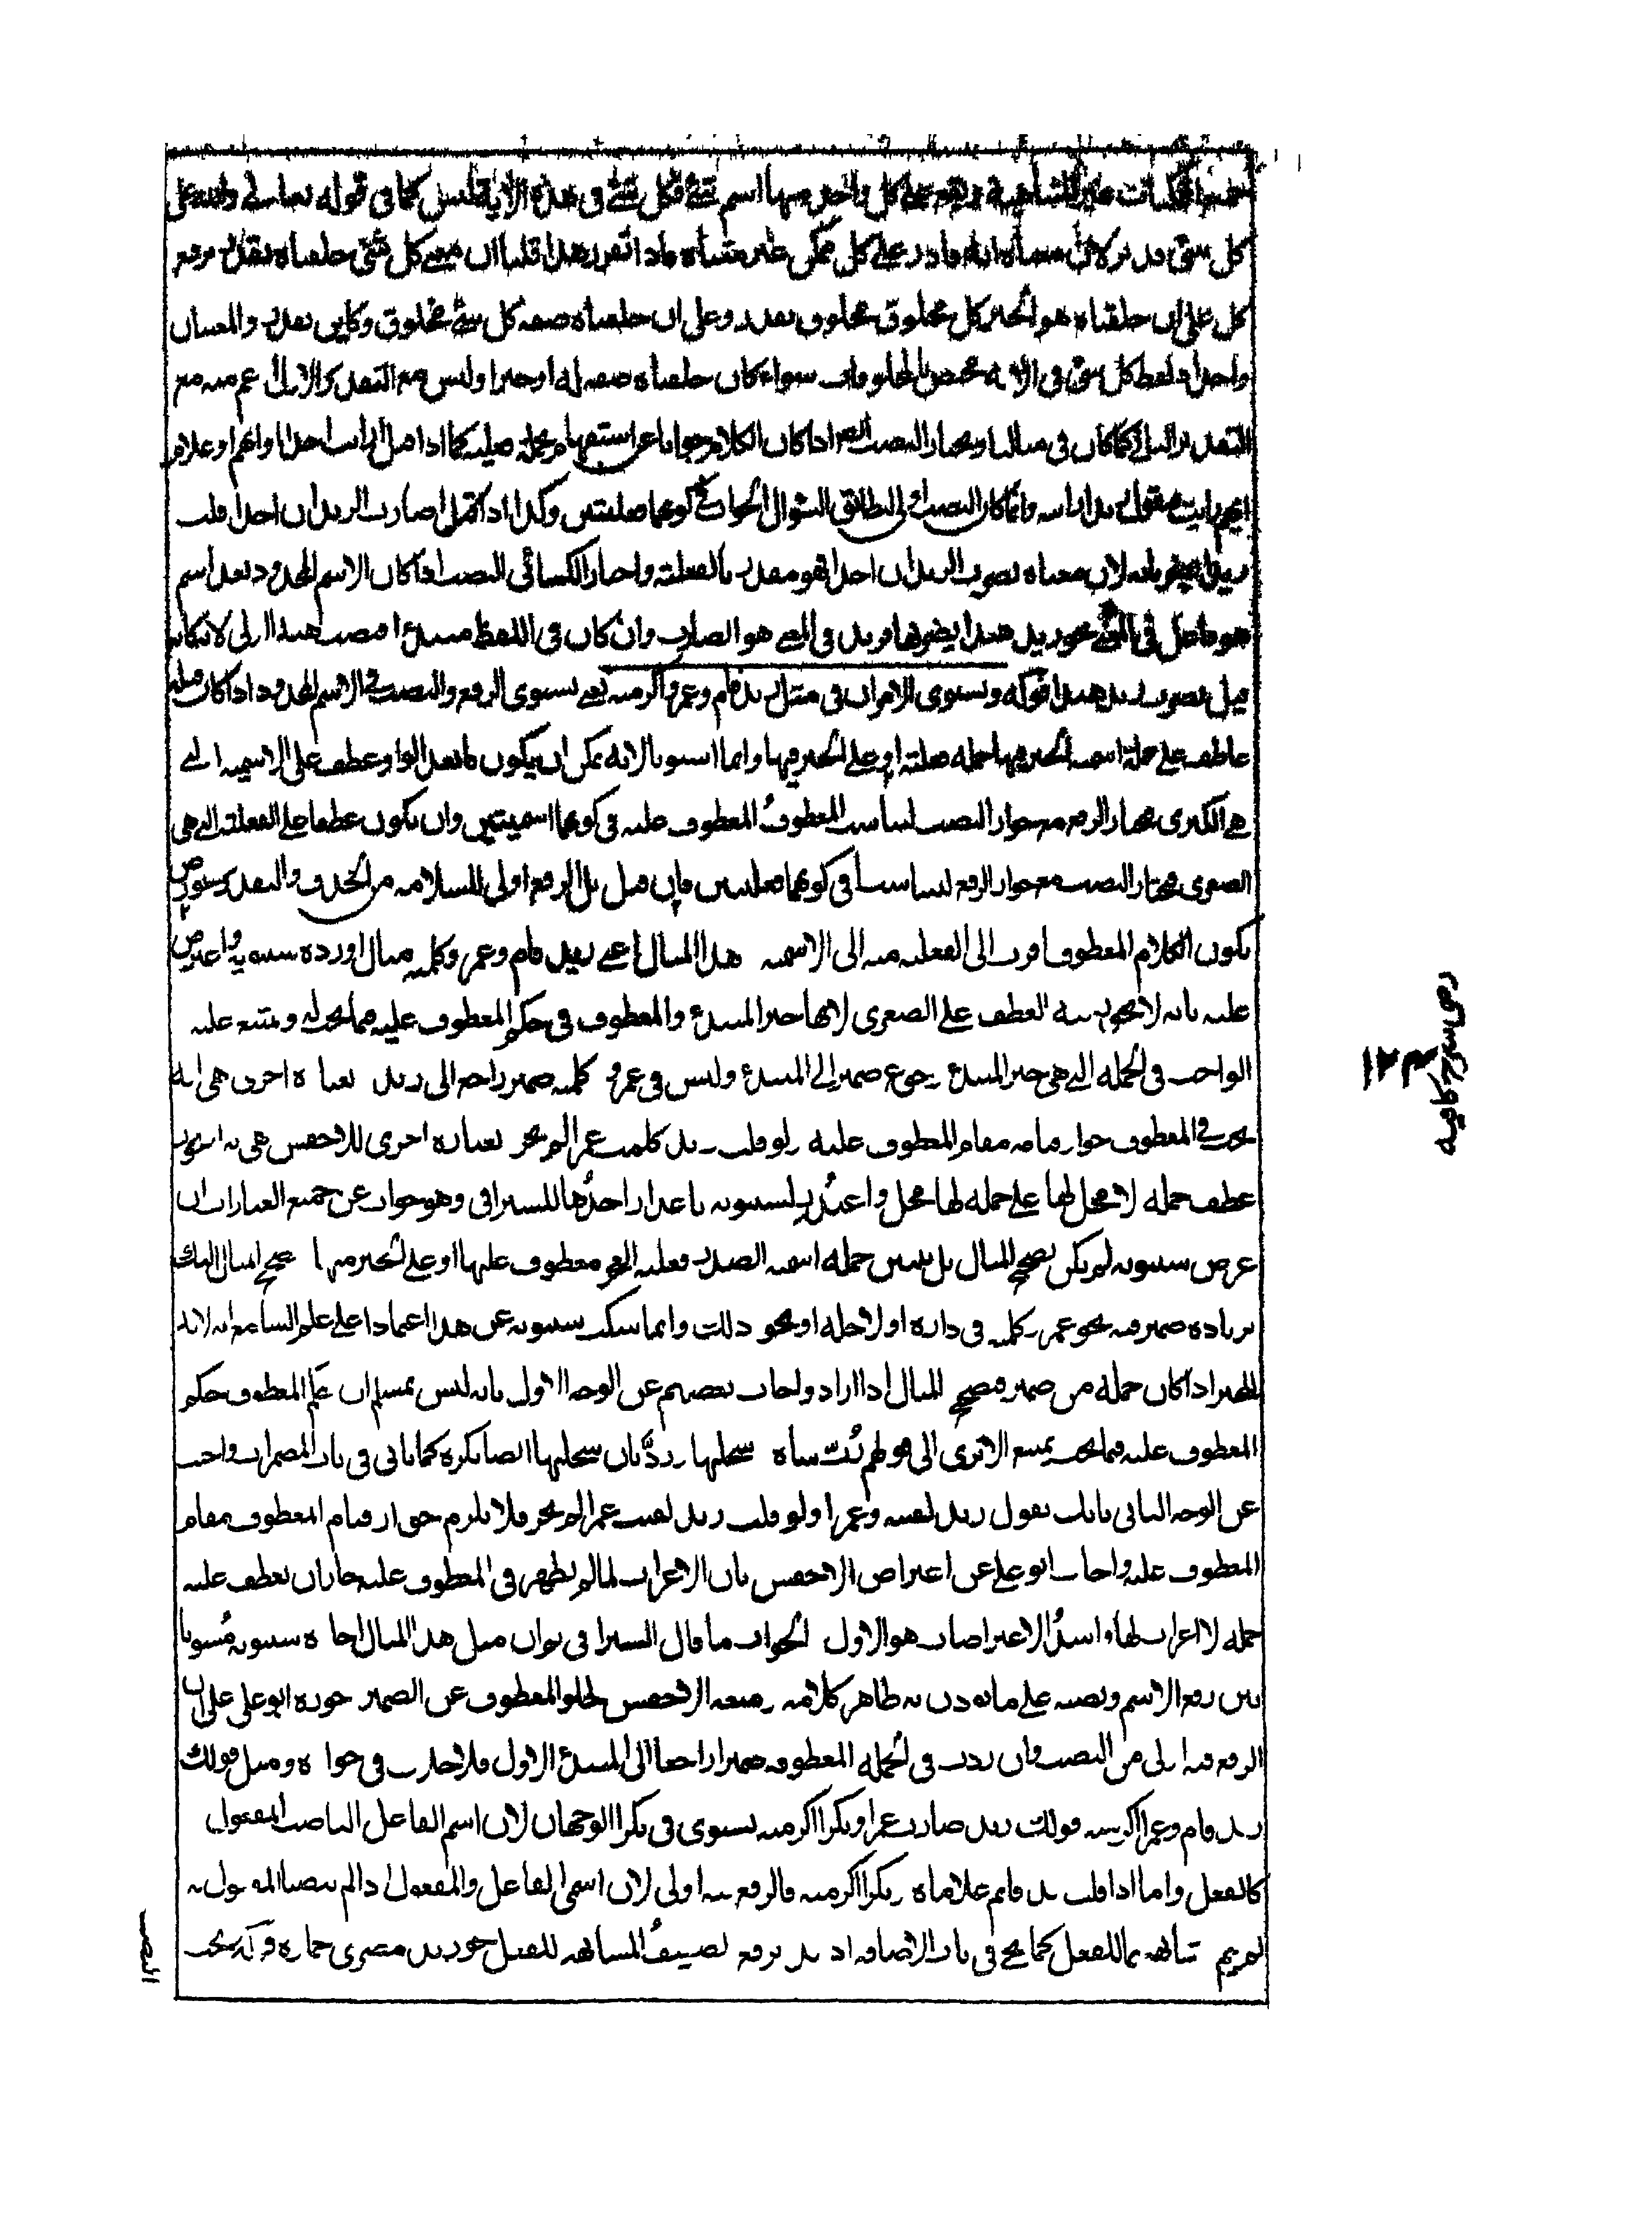 الممكنات غير المتناهية ويقع على كل واحد منها اسم شئ فكل شئ في هذه الآية ليس كما في قوله تعالى والله على
كل شئ قدير لان معناه انه قادر على كل ممكن غير متناه فاذا تقرر هذا قلنا ان معنى كل شئ خلقناه بقدر برفع
كل على ان خلقناه هو الخبر كل مخلوق مخلوق بقدر وعلى ان خلقناه صفة كل شئ مخلوق وكاين بقدر والمعنيان
واحد اذ لفظ كل شئ في الآية مختص بالمخلوقات سواء كان خلقناه صفة له او خبرا وليس مع التقدير الاول اعم منه مع
التقدير الثاني كما كان في مثالنا ويختار النصب ايضا اذا كان الكلام جوابا عن استفهام بجملة فعلية كما اذا قيل ارأيت احدا وايهم او غلام
ايهم رأيت فتقول زيدا رأيته وانما كان النصب اولى ليطابق السؤال الجواب في كونهما فعليتين وكذا اذا قيل اضارب الزيدان احدا قلت
زيدا يضربانه لان معناه يضرب الزيدان احدا فهو مقدر بالفعلية واختار الكسائي النصب اذا كان الاسم المحدود بعد اسم
هو فاعل في المعنى نحو زيد هندا يضربها فزيد في المعنى هو الضارب وان كان في اللفظ مبتدأ فنصب هندا اولى لانه كانه
قيل يضرب زيد هندا قوله ويستوي الامران في مثل زيد قام وعمرو اكرمته يعني يستوي الرفع والنصب في الاسم المحدود اذا كان قبله
عاطف على جملة اسمية الخبر فيها جملة فعلية او على الخبر فيها وانما استويا لانه يمكن ان يكون ما بعد الواو عطف على الاسمية التي
هي الكبرى فيختار الرفع مع جواز النصب ليناسب المعطوف المعطوف عليه في كونهما اسميتين وان يكون عطفا على الفعلية التي هي
الصغرى فيختار النصب مع جواز الرفع ليتناسبا في كونهما فعليتين فان قيل بل الرفع اولى للسلامة من الحذف والتقدير
يكون الكلام المعطوف اقرب الى الفعلية منه الى الاسمية هذا المثال اعني زيد قام وعمرو كلمته مثال اورده سيبويه واعترض
عليه بانه لا يجوز فيه العطف على الصغرى لانها خبر المبتدأ والمعطوف في حكم المعطوف عليه فيما يجب له ويمتنع عليه
الواجب في الجملة التي هي خبر المبتدأ رجوع ضمير الى المبتدأ وليس في عمرو كلمته ضمير راجع الى زيد بعبارة اخرى هي انه
يجب في المعطوف جواز قيامه مقام المعطوف عليه ولو قلت زيد كلمت عمرا لم يجز بعبارة اخرى للاخفش هي انه لا يجوز
عطف جملة لا محل لها على جملة لها محل واعتذر لسيبويه باعذار احدها للسيرافي وهو جواب عن جميع العبارات ان
غرض سيبويه لم يكن تصحيح المثال بل تبيين جملة اسمية الصدر فعلية العجز معطوف عليها او على الخبر منها تصحيح المثال اليك
بزيادة ضمير فيه نحو عمرو كلمته في داره او لاجله او نحو ذلك وانما سكت سيبويه عن هذا اعتمادا على علم السامع انه لابد
للخبر اذا كان جملة من ضمير فيصحح المثال اذا اراد واجاب بعضهم عن الوجه الاول بانه ليس بمسلم ان حكم المعطوف حكم
المعطوف عليه فيما يجب يمتنع الا ترى الى قولهم رب شاة سخلتها رد بان سخلتها ايضا نكرة كما ياتي في باب المضمرات واجيب
عن الوجه الثاني بانك تقول زيد لقيته وعمرا ولو قلت زيد لقيت عمرا لم يجز فلا يلزم جواز قيام المعطوف مقام
المعطوف عليه واجاب ابو علي عن اعتراض الاخفش بان الاعراب لما لم يظهر في المعطوف عليه جاز ان يعطف عليه
جملة لا اعراب لها واشد الاعتراضات هو الاول الجواب ما قال السيرافي جواز مثل هذا المثال اجازه سيبويه مسويا
بين رفع الاسم ونصبه على ما يوذن به ظاهر كلامه منعه الاخفش لخلو المعطوف عن الضمير جوزه ابو علي على ان
الرفع فيه اولى من النصب وان زدت في الجملة المعطوفة ضميرا راجعا الى المبتدأ الاول فلا خلاف في جوازه ومثل قولك
زيد قام وعمرا اكرمته قولك زيد ضارب عمرا وبكرا اكرمته يستوي في بكرا الوجهان لان اسم الفاعل الناصب للمفعول
كالفعل واما اذا قلت زيد قائم غلاماه وبكرا اكرمته فالرفع فيه اولى لان اسمي الفاعل والمفعول اذا لم ينصبا المفعول به
لم يتم تشابههما للفعل كما يجئ في باب الاضافة اذ قد يرفع لضعيف المشابهة للفعل نحو زيد مصري حماره قوله يجب
النصب
رضى
كافيه